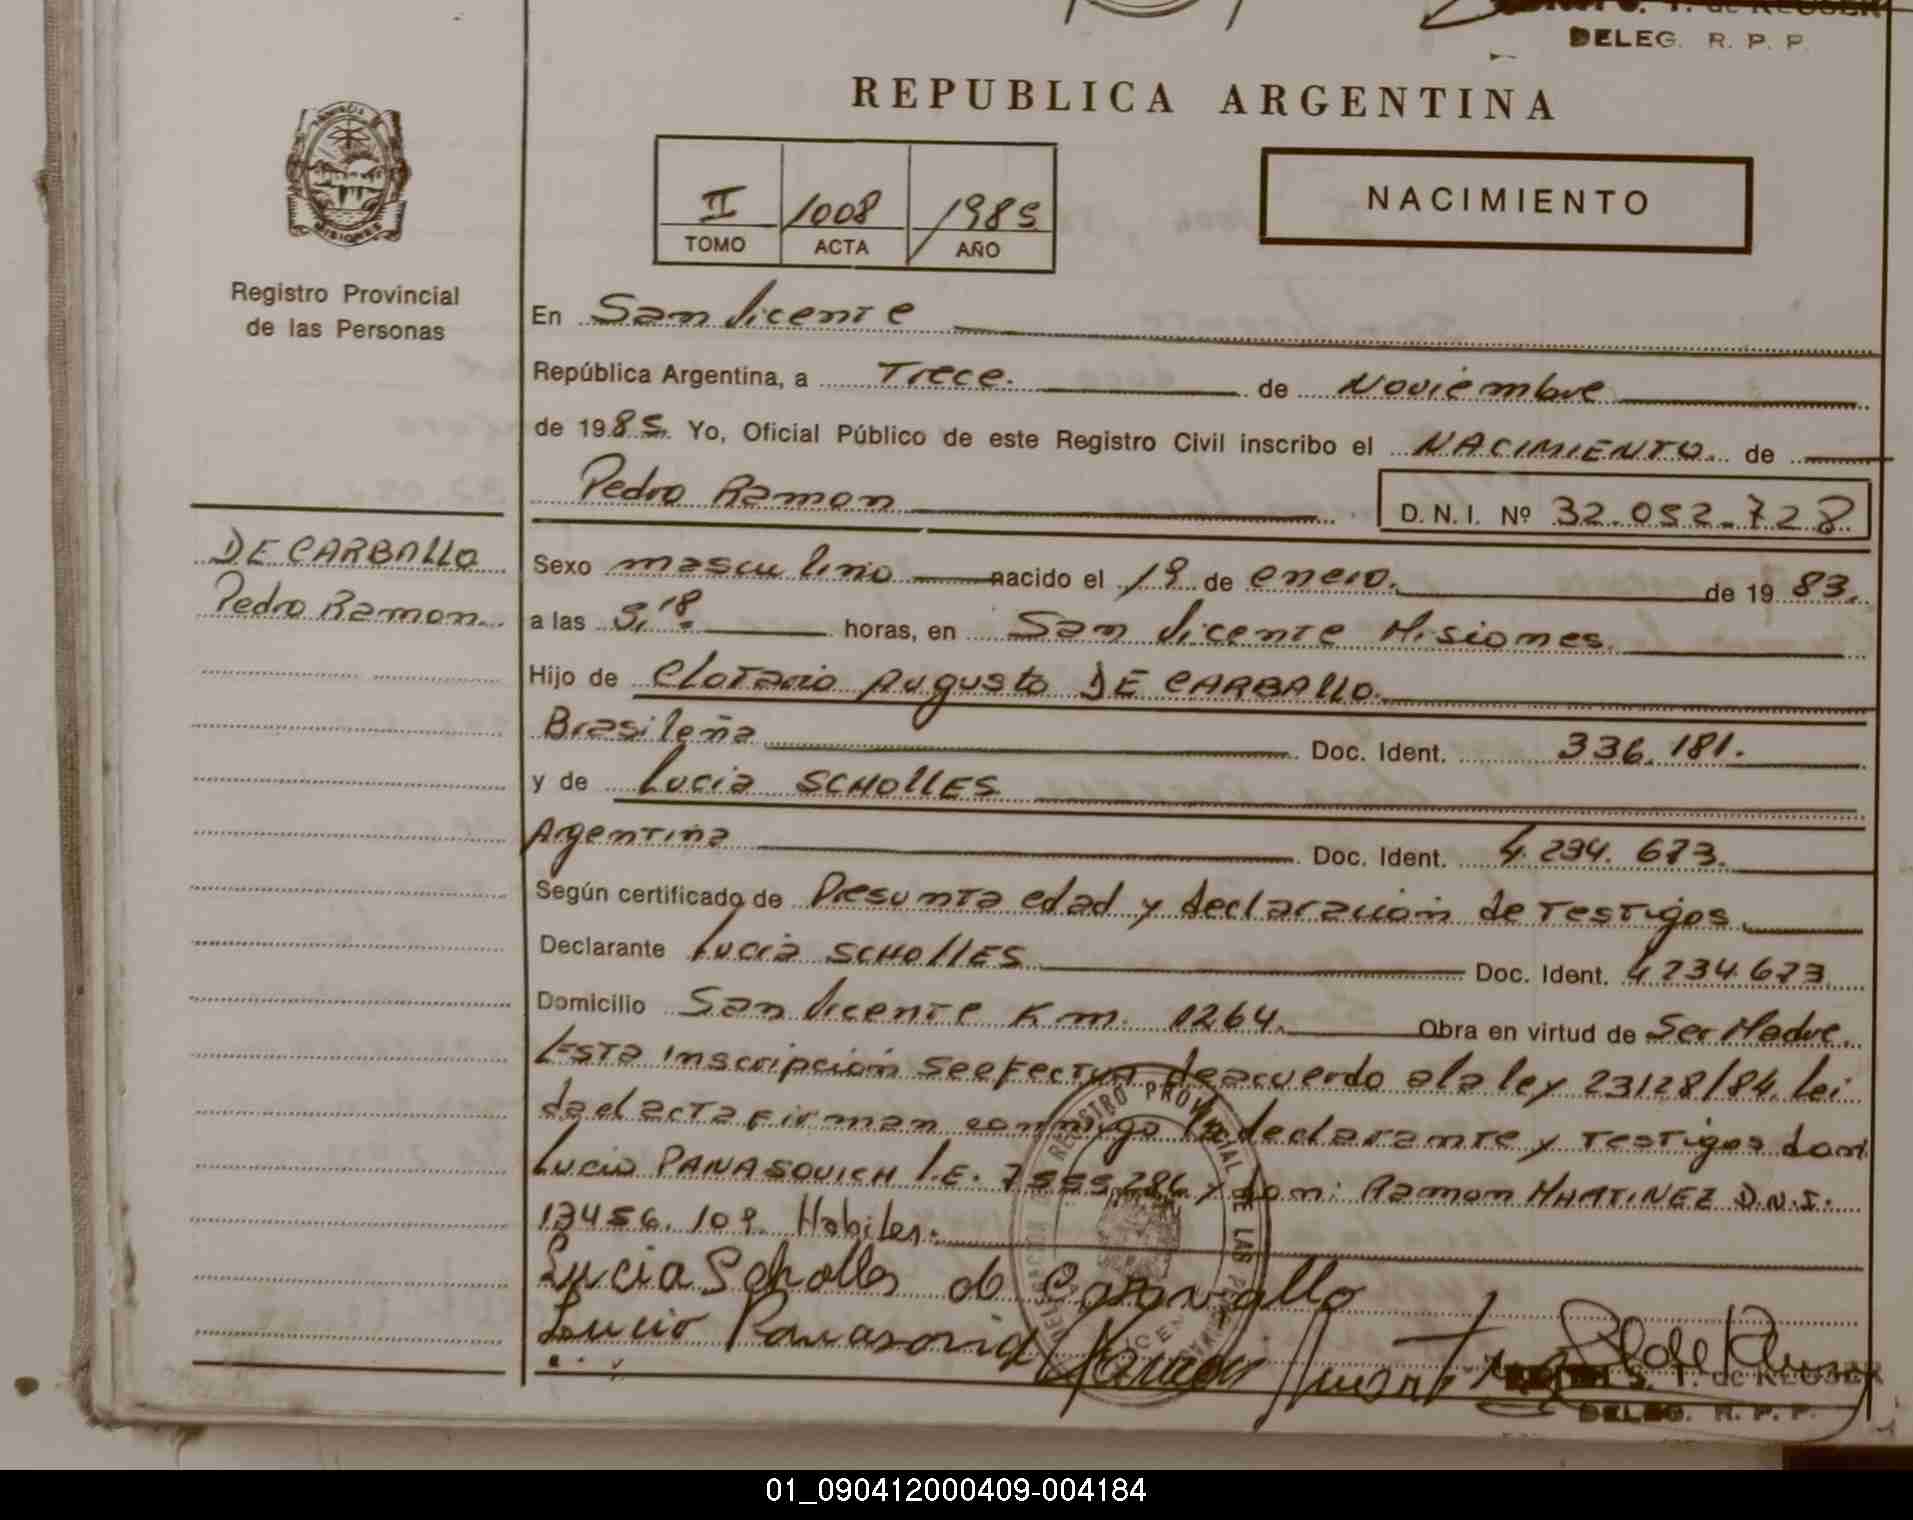 DELEG. R. P. P.
REPUBLICA ARGENTINA
PROVINCIA
MISIONES
II 1008 1985
TOMO ACTA AÑO
NACIMIENTO
Registro Provincial
de las Personas
En San Vicente
República Argentina, a Trece. de Noviembre
de 1985. Yo, Oficial Público de este Registro Civil inscribo el NACIMIENTO. de
Pedro Ramon D. N. I. Nº 32.052.728
DE CARBALLO
Pedro Ramon.
Sexo masculino nacido el 19 de enero. de 19 83.
a las horas, en San Vicente Misiones.
Hijo de Clotario Augusto DE CARBALLO.
Brasileña Doc. Ident. 336.181.
y de Lucia SCHOLLES
Argentina Doc. Ident. 4.234.673.
Según certificado de Presunta edad y declaración de testigos
Declarante Lucia SCHOLLES Doc. Ident. 4.234.673
Domicilio San Vicente Km. 1264. Obra en virtud de Ser Madre.
Esta inscripción se efectua de acuerdo a la ley 23128/84. Lei
da el acta firman conmigo la declarante y testigos don
Lucio PANASOVICH L.E. 7555286 y don: Ramon MARTINEZ D.N.I.
13456.109. Habiles.
Lucia Scholles de Caravallo
Lucio Panasovich
Ramon
S. T. de KEUSER
DELEG. R. P. P.
01_090412000409-004184